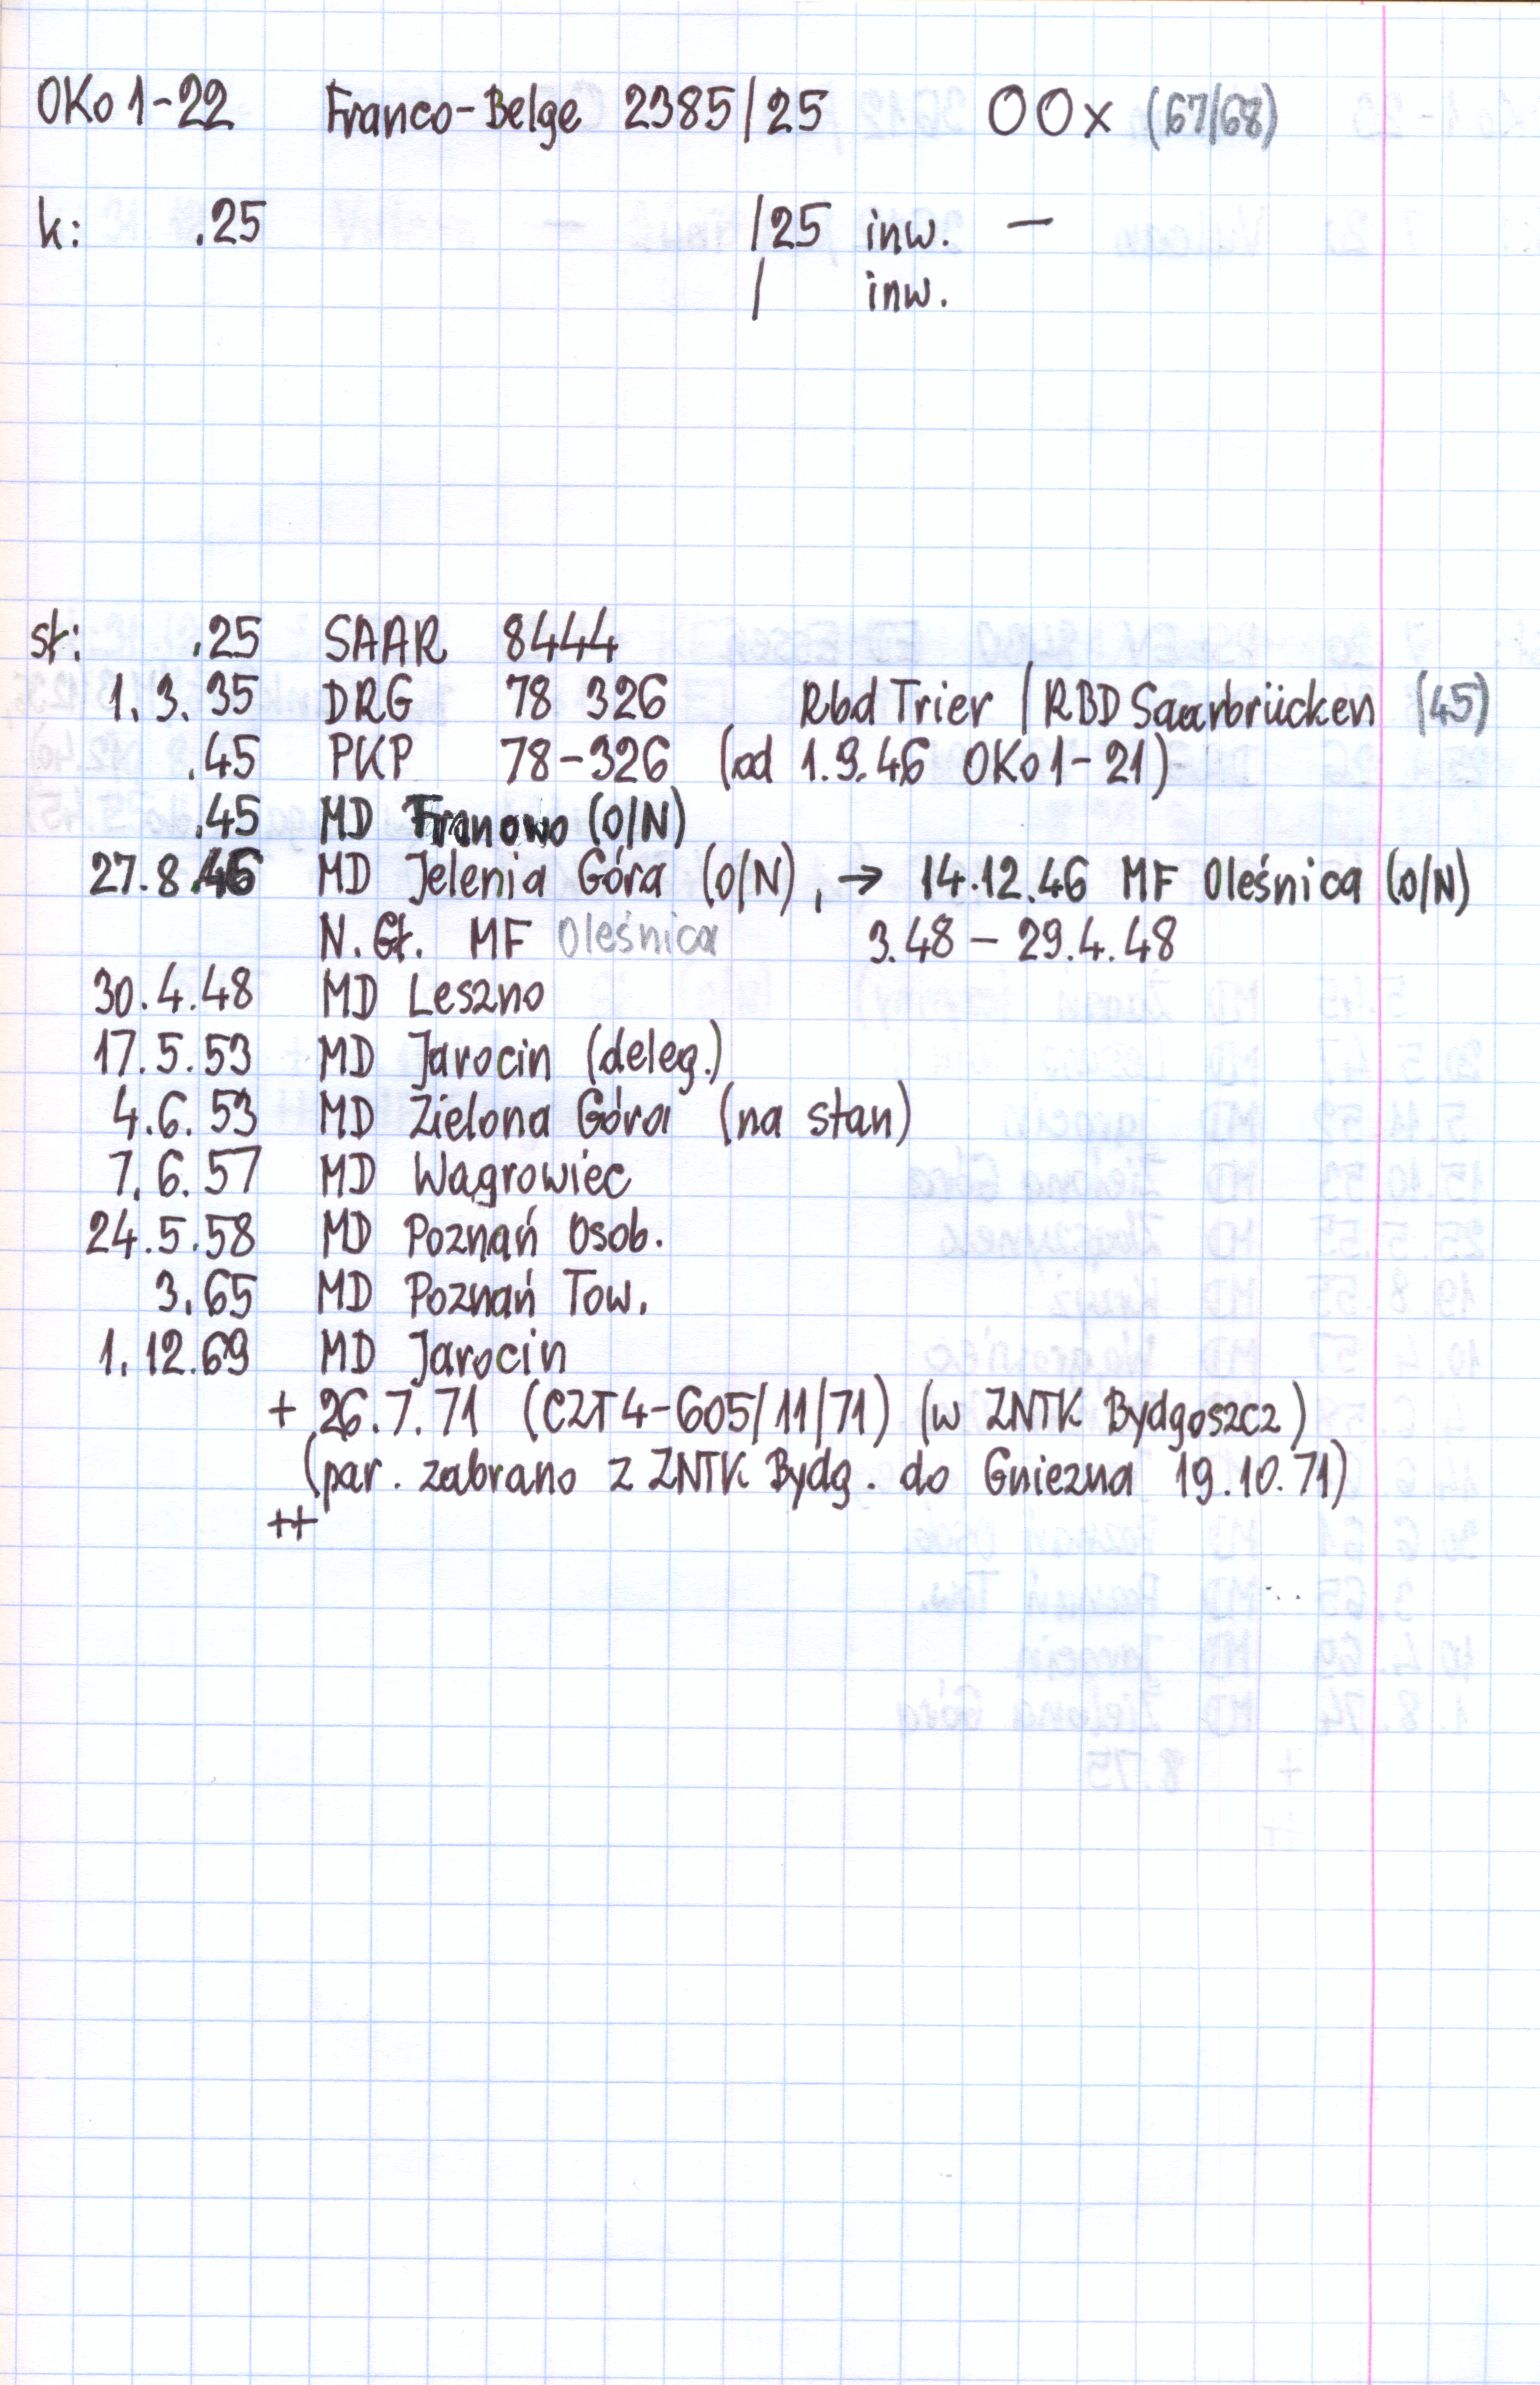 OKo1-22 Franco-Belge 2385/25 OOx (67/68)
k: .25 /25 inw. —
/ inw.
st: .25 SAAR 8444
1.3.35 DRG 78 326 Rbd Trier / RBD Saarbrücken (45)
.45 PKP 78-326 (od 1.9.46 OKo1-21)
.45 MD Franowo (O/N)
27.8.46 MD Jelenia Góra (O/N), → 14.12.46 MF Oleśnica (O/N)
N.Gł. MF Oleśnica 3.48 – 29.4.48
30.4.48 MD Leszno
17.5.53 MD Jarocin (deleg.)
4.6.53 MD Zielona Góra (na stan)
7.6.57 MD Wągrowiec
24.5.58 MD Poznań Osob.
3.65 MD Poznań Tow.
1.12.69 MD Jarocin
+ 26.7.71 (CZT4-605/11/71) (w ZNTK Bydgoszcz)
(par. zabrano z ZNTK Bydg. do Gniezna 19.10.71)
++